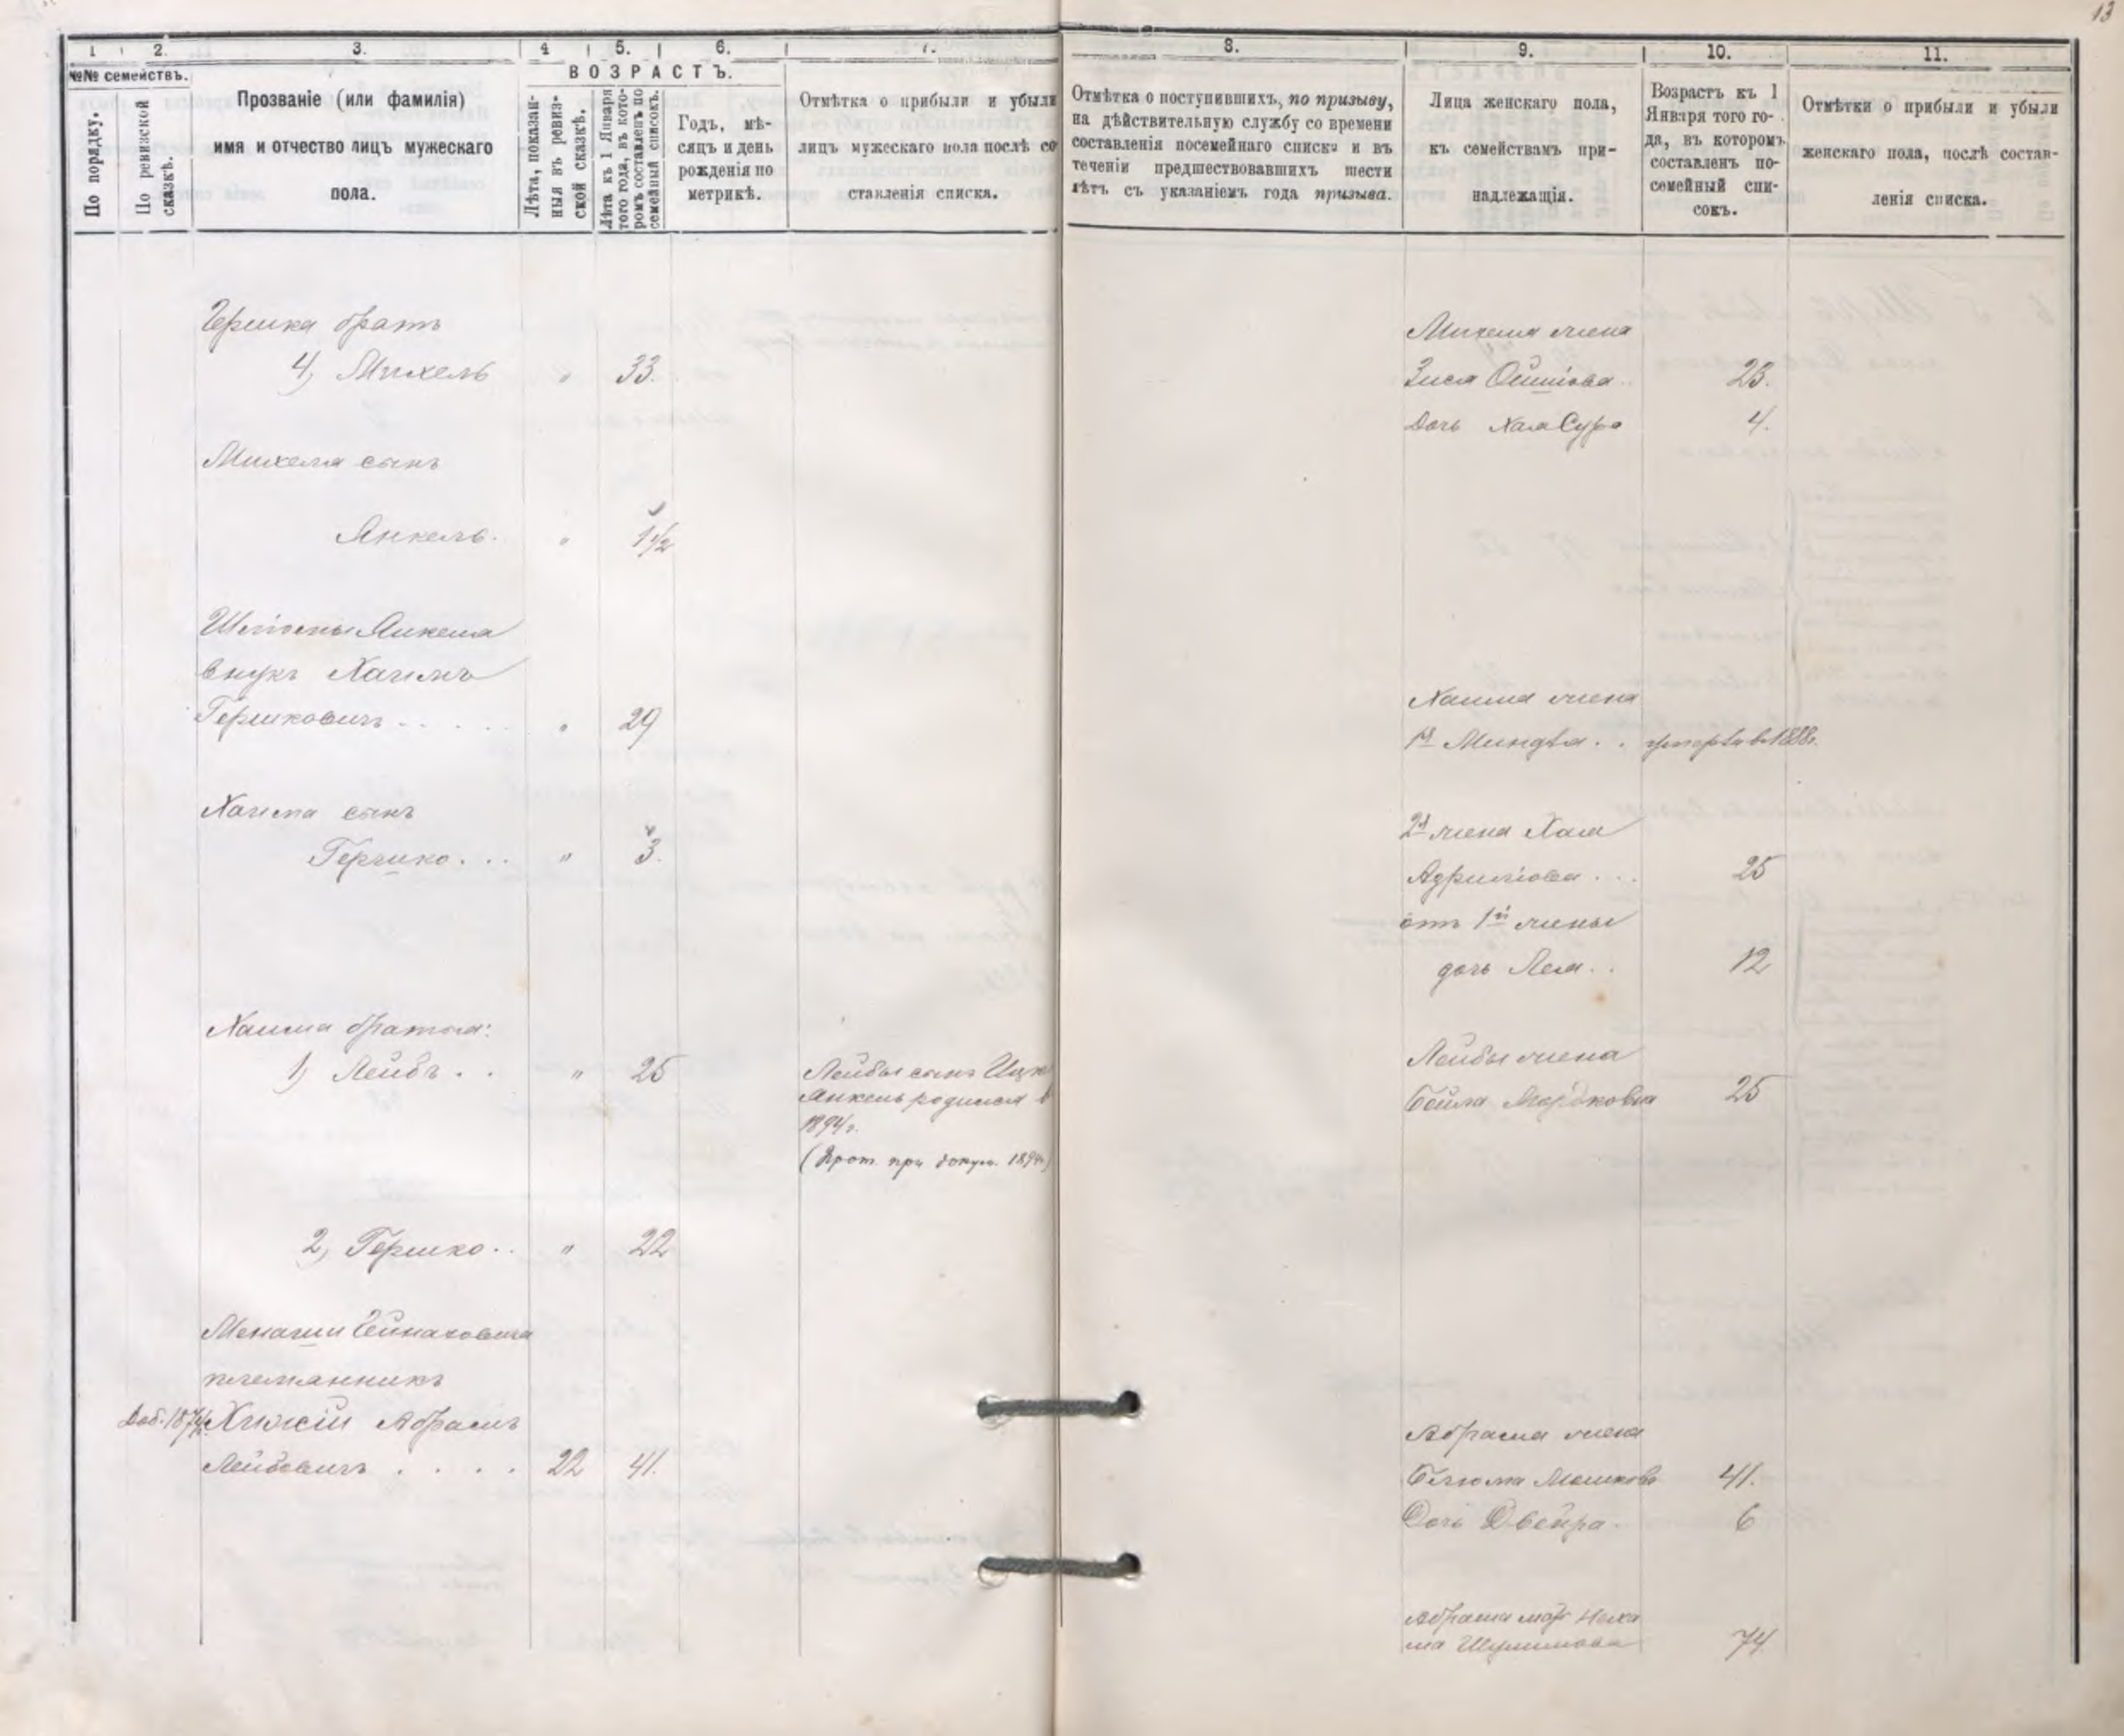 13
1
2.
3.
4
5.
6.
7.
8.
9.
10.
11.
№№ семействъ.
По порядку.
По ревизской
сказкѣ.
Прозваніе (или фамилія)
имя и отчество лицъ мужескаго
пола.
ВОЗРАСТЪ.
Лѣта, показан-
ныя въ ревиз-
ской сказкѣ.
Лѣта къ 1 Января
того года, въ кото-
ромъ составленъ по
семейный списокъ.
Годъ, мѣ-
сяцъ и день
рожденія по
метрикѣ.
Отмѣтка о прибыли и убыли
лицъ мужескаго пола послѣ со
ставленія списка.
Отмѣтка о поступившихъ, по призыву,
на дѣйствительную службу со времени
составленія посемейнаго списка и въ
теченіи предшествовавшихъ шести
лѣтъ съ указаніемъ года призыва.
Лица женскаго пола,
къ семействамъ при-
надлежащія.
Возрастъ къ 1
Января того го-
да, въ которомъ
составленъ по-
семейный спи-
сокъ.
Отмѣтки о прибыли и убыли
женскаго пола, послѣ состав-
ленія списка.
Гершка братъ
4) Михель " 33.
Михеля жена
Зися 23.
Дочь Хая Сура 4.
Михеля сынъ
Янкель. " 1 1/2
Янкеля
внукъ Хаимъ
Гершковичъ . . . . . " 29
Хаима жена
1я Миндля . . умерла въ 1888г.
Хаима сынъ
Гершко . . . " 3.
2я жена Хая
25
отъ 1й жены
дочь Лея . . 12
Хаима братья:
1) Лейбъ . . " 25
Лейбы сынъ Ицко
Янкель родился в
1894г.
(Прот. при докум. 1894)
Лейбы жена
Бейла Мордковна 25
2) Гершко . . " 22
племянникъ
Доб. 1874г. Абрамъ
Лейбовичъ . . . . 22 41.
Абрама жена
Мошкова 41.
Дочь Двейра. 6
Абрама мать Неха
ма 74